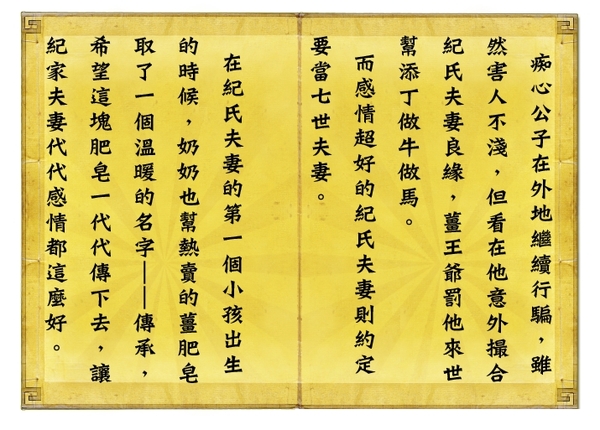 痴心公子在外地繼續行騙，雖
然害人不淺，但看在他意外撮合
紀氏夫妻良緣，薑王爺罰他來世
幫添丁做牛做馬。
而感情超好的紀氏夫妻則約定
要當七世夫妻。
在紀氏夫妻的第一個小孩出生
的時候，奶奶也幫熱賣的薑肥皂
取了一個溫暖的名字——傳承，
希望這塊肥皂一代代傳下去，讓
紀家夫妻代代感情都這麼好。